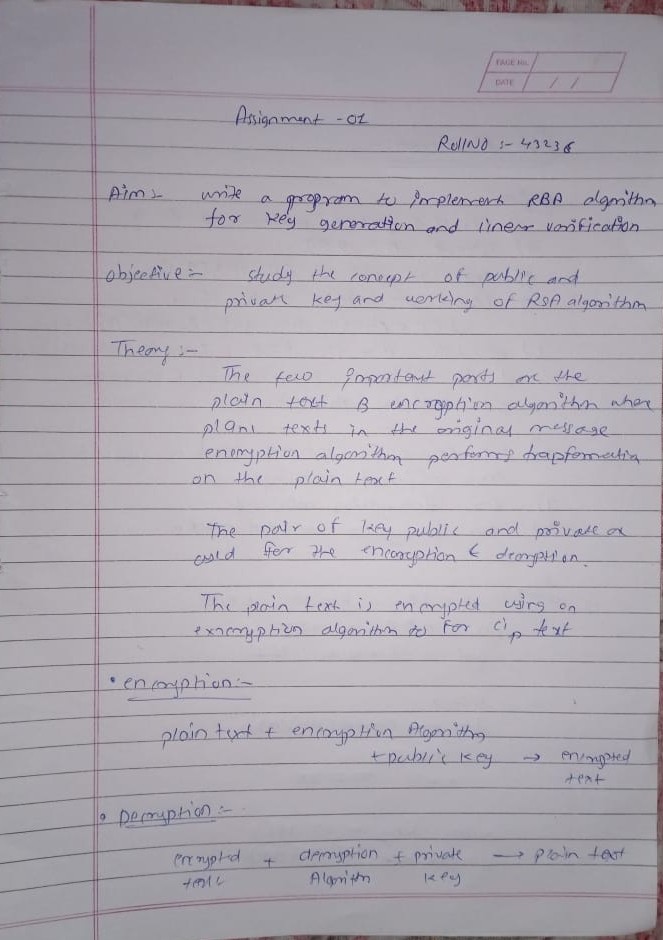 PAGE No.
DATE / /
Assignment - 01
RollNO :- 43236
Aim :- write a program to implement RBA algorithm
for key generation and linear varification
objective :- study the concept of public and
private key and working of RSA algorithm
Theory :-
The two important parts are the
plain text & encryption algorithm where
plani texts in the original message
encryption algorithm performs
on the plain text
The pair of key public and private
for the encoryption & decryption.
The plain text is encrypted using an
algorithm to for cip text
• encryption :-
plain text + encryption Algorithm
+ public key → encrypted
text
• Decryption :-
encrypted + decryption + private → plain text
Algorithm key